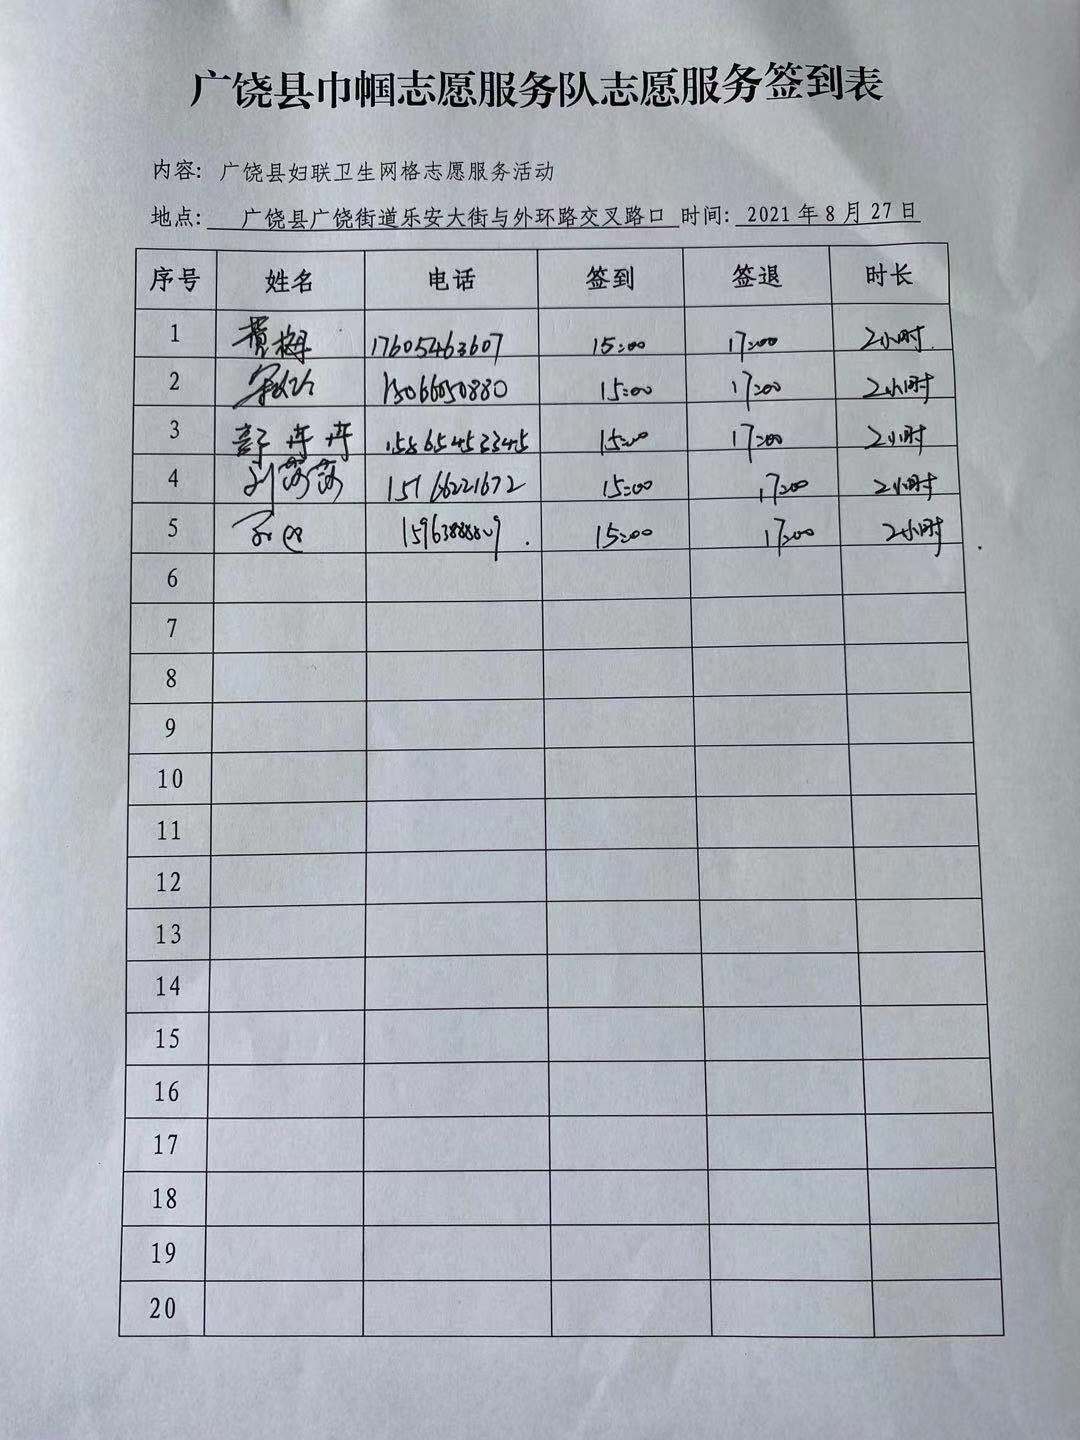 广饶县巾帼志愿服务队志愿服务签到表
内容: 广饶县妇联卫生网格志愿服务活动
地点: 广饶县广饶街道乐安大街与外环路交叉路口 时间: 2021年8月27日
序号 姓名 电话 签到 签退 时长
1 梅 17605463607 15:00 17:00 2小时
2 15066050880 15:00 17:00 2小时
3 卉卉 15865453345 15:00 17:00 2小时
4 刘莎莎 15166221672 15:00 17:00 2小时
5 15:00 17:00 2小时
6
7
8
9
10
11
12
13
14
15
16
17
18
19
20